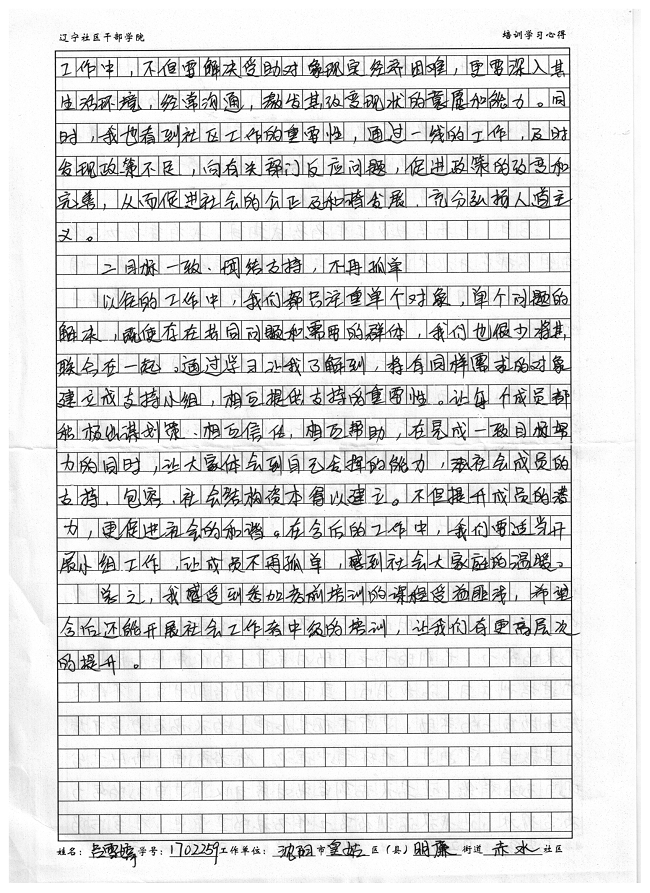 辽宁社区干部学院 培训学习心得
工作中，不但要解决受助对象现实经济困难，更要深入其
生活环境，经常沟通，激发其改变现状的意愿和能力。同
时，我也看到社区工作的重要性，通过一线的工作，及时
发现政策不足，向有关部门反应问题，促进政策的改变和
完善，从而促进社会的公正及和谐发展，充分弘扬人道主
义。
二目标一致、团结支持，不再孤单
以往的工作中，我们都只注重单个对象，单个问题的
解决，既使存在共同问题和需要的群体，我们也很少将其
联合在一起。通过学习让我了解到，将有同样需求的对象
建立成支持小组，相互提供支持的重要性。让每个成员都
积极出谋划策、相互信任，相互帮助，在完成一致目标努
力的同时，让大家体会到自己发挥的能力，社会成员的
支持、包容、社会结构资本得以建立。不但提升成员的
力，更促进社会的和谐。在今后的工作中，我们要适当开
展小组工作，让成员不再孤单，感到社会大家庭的温暖。
总之，我感受到参加考前培训的课程受益匪浅，希望
今后还能开展社会工作者中级的培训，让我们有更高层次
的提升。
姓名： 学号：1702259 工作单位：沈阳市皇姑区（县）明廉街道赤水社区